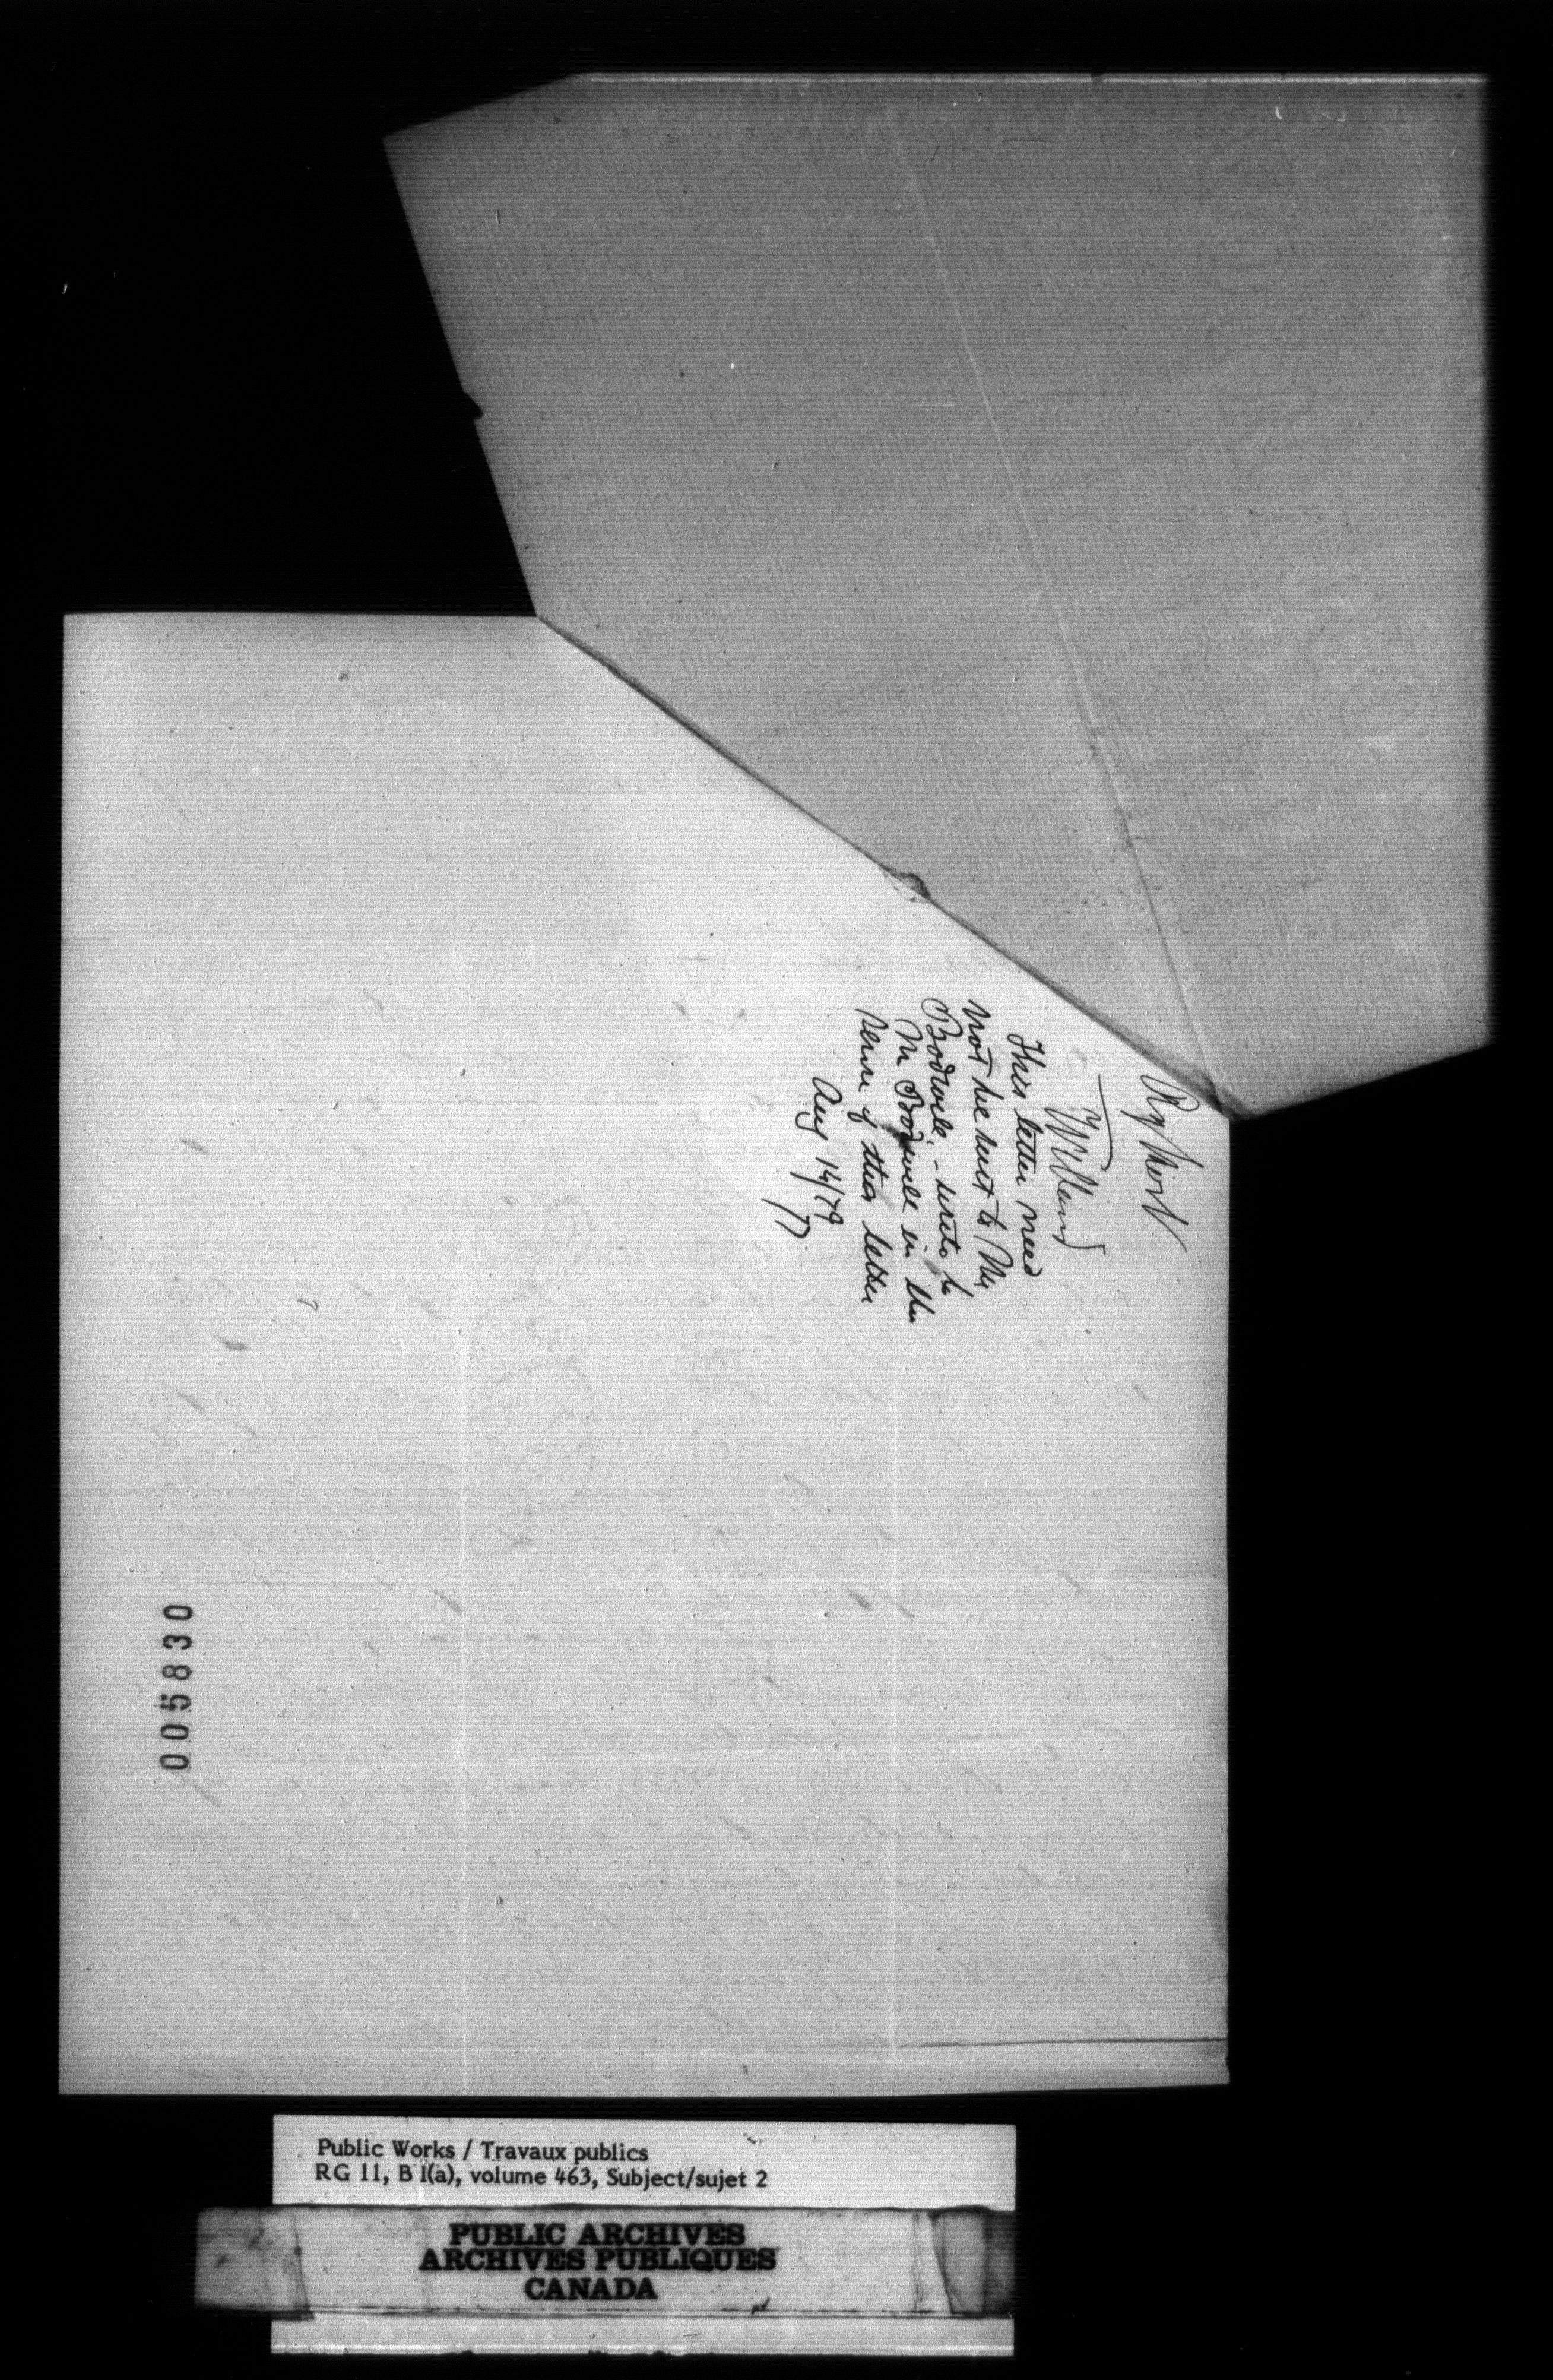 This letter need
not be sent to Mr
Bodwell, - write to
Mr Bodwell in the
sense of this letter
Aug 14/79
005830
Public Works / Travaux publics
RG 11, B 1(a), volume 463, Subject/sujet 2
PUBLIC ARCHIVES
ARCHIVES PUBLIQUES
CANADA